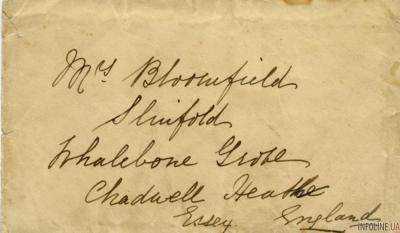 Mrs Bloomfield
Slinfold
Whalebone Grove
Chadwell Heathe
Essex England
INFOLINE.UA